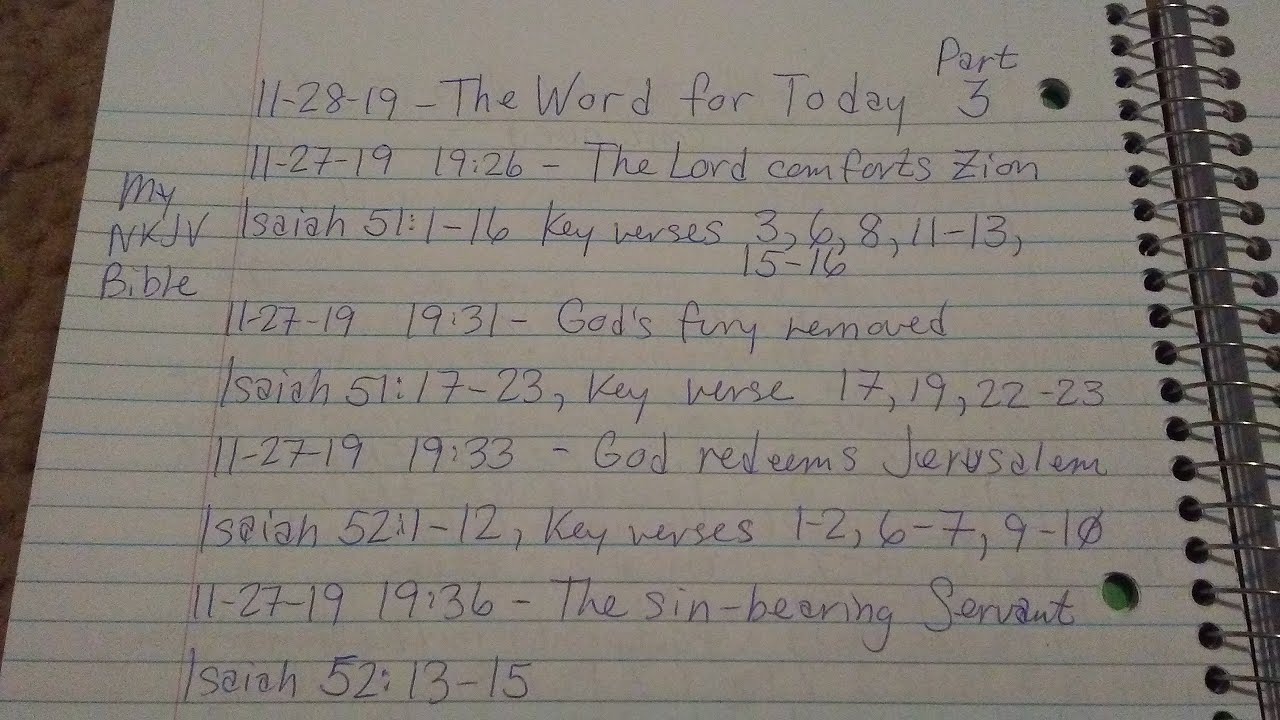 Part
11-28-19 - The Word for Today 3
11-27-19 19:26 - The Lord comforts Zion
My
NKJV
Bible
Isaiah 51:1-16 Key verses 3, 6, 8, 11-13,
15-16
11-27-19 19:31 - God's fury removed
Isaiah 51:17-23, Key verse 17, 19, 22-23
11-27-19 19:33 - God redeems Jerusalem
Isaiah 52:1-12, Key verses 1-2, 6-7, 9-10
11-27-19 19:36 - The sin-bearing Servant
Isaiah 52:13-15